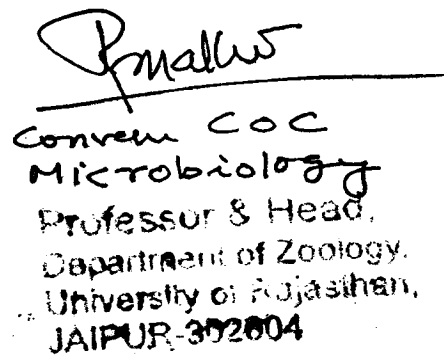 COC
Microbiology
Professor & Head,
Department of Zoology,
University of Rajasthan,
JAIPUR-302004